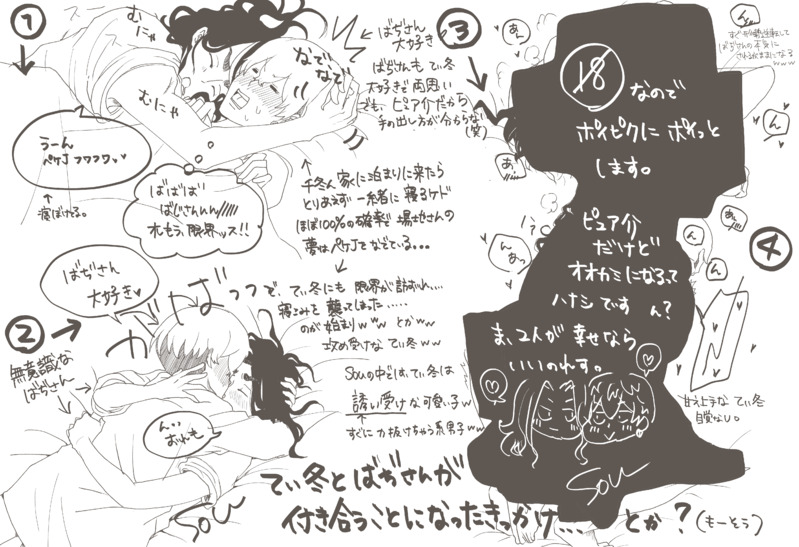 ①
むにゃ
むにゃ
なでなで
うーん
ペケJフワフワ♥
↑
寝ぼけてる。
ばばば
ばじさんんん/////
オレもう、限界ッス!!
ばぢさん
大好き
ばぢさんも てぃ冬
大好きで両思い
でも、ピュア介だから
手の出し方が分からな
(笑)
↑
千冬ん家に泊まりに来たら
とりあえず一緒に寝るケド
ほぼ100%の確率で場地さんの
夢はペケJをなでている...
↓
で、てぃ冬にも限界が訪れ、...
寝こみを襲ってしまった.....
のが始まりwww とかww
攻め受けな てぃ冬ww
Souの中では、てぃ冬は
誘い受けな可愛い子w
↑
すぐに力抜けちゃう系男子ww
②
ばぢさん
大好き♥
ばっっ
無意識な
ばぢさん
んッ
おれも
Sou
③
あん
ん
あ
んあっ
!?
ん
すぐ形勢逆転して
ばぢさんの本気に
されるがままになる
www
ん
⑱なので
ポイピクにポイっと
します。
ピュア介
だけど
オオカミになるって
ハナシです ん?
ま、2人が幸せなら
いいのれす。
Sou
④
あん
ん
ん
甘え上手なてぃ冬
自覚なし。
てぃ冬とばぢさんが
付き合うことになったきっかけ... とか?(もーそう)